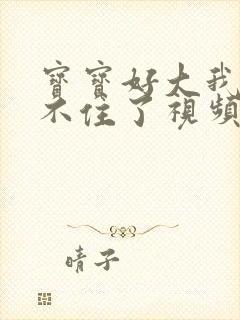 寶寶好大我
不住了視頻
晴子